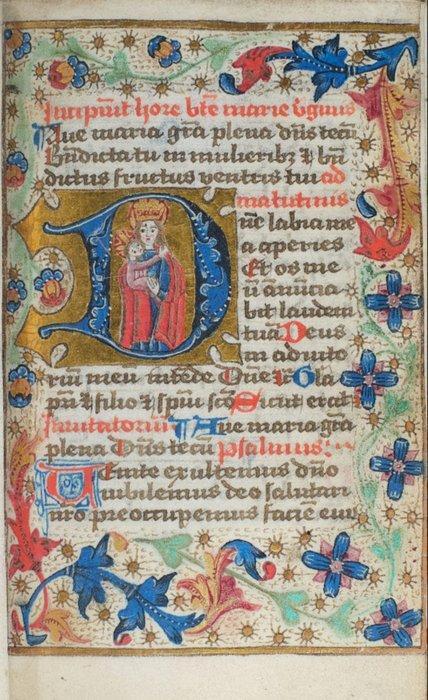 Incipiūt hore bt̄e marie v̾ginis
Aue maria gr̄a plena dn̄s tecū
Bn̄dicta tu in mulierib₃ ⁊ bn̄
dictus fructus ventris tui ad
matutinis
Dn̄e labia me
a aperies
Et os me
ū ānūcia
bit laudem
tuā Deus
in adiuto
riū meū intēde Dn̄e Gl̄a
pr̄i ⁊ filio ⁊ sp̄iui scō Sicut erat
Inuitatoriū Aue maria gr̄a
plena Dn̄s tecū psalmus
Uenite exultemus dn̄o
iubilemus deo salutari
nr̄o preoccupemus faciē eiu